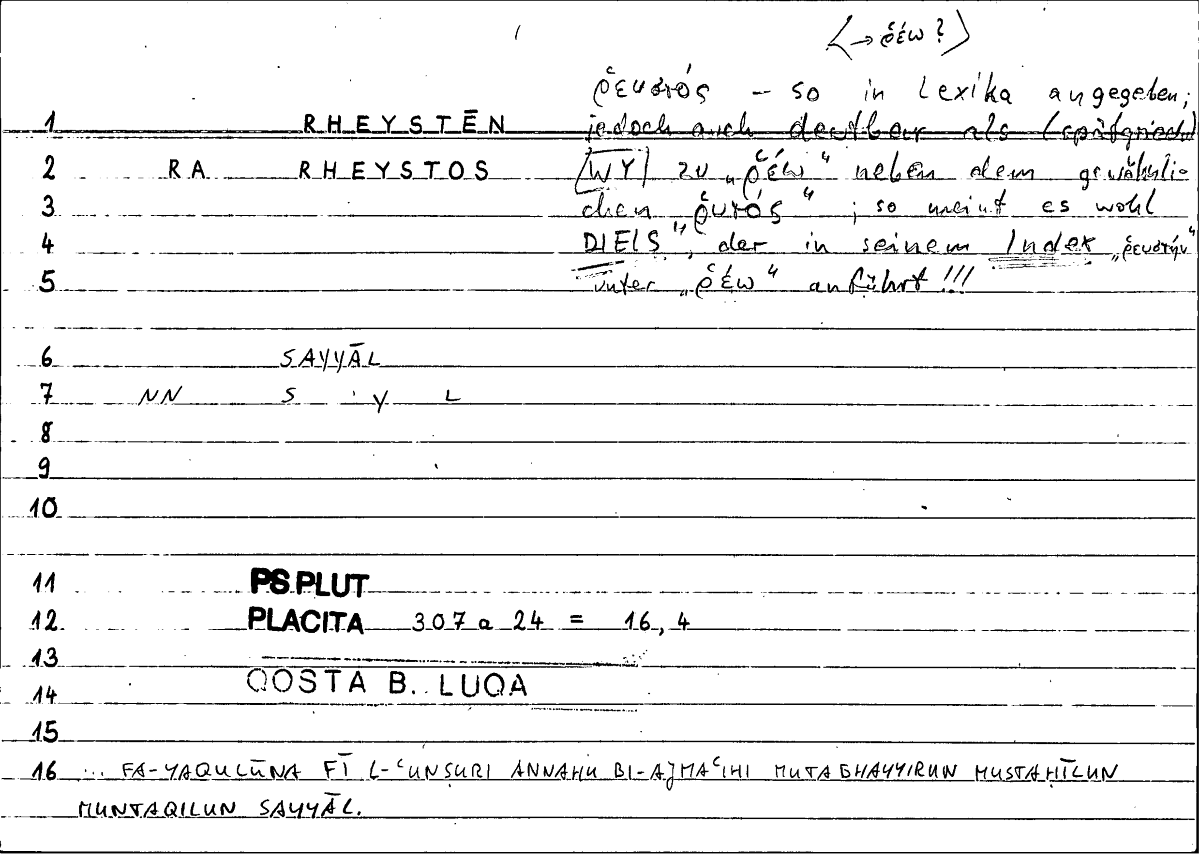 ⟨→ ῥέω?⟩
ῥευστός – so in Lexika angegeben;
1 RHEYSTĒN jedoch auch deutbar als (spätgriech)
2 RA RHEYSTOS [WY] zu „ῥέω“ neben dem gewöhnli-
3 chen „ῥυτός“; so meint es wohl
4 DIELS, der in seinem Index „ῥευστήν“
5 unter „ῥέω“ anführt!!!
6 SAYYĀL
7 NN S Y L
8
9
10
11 PS.PLUT
12 PLACITA 307a 24 = 16,4
13
14 QOSTA B. LUQA
15
16 ... FA-YAQULŪNA FĪ L-ʿUNṢURI ANNAHU BI-AJMAʿIHI MUTAGHAYYIRUN MUSTAḤĪLUN
MUNTAQILUN SAYYĀL.